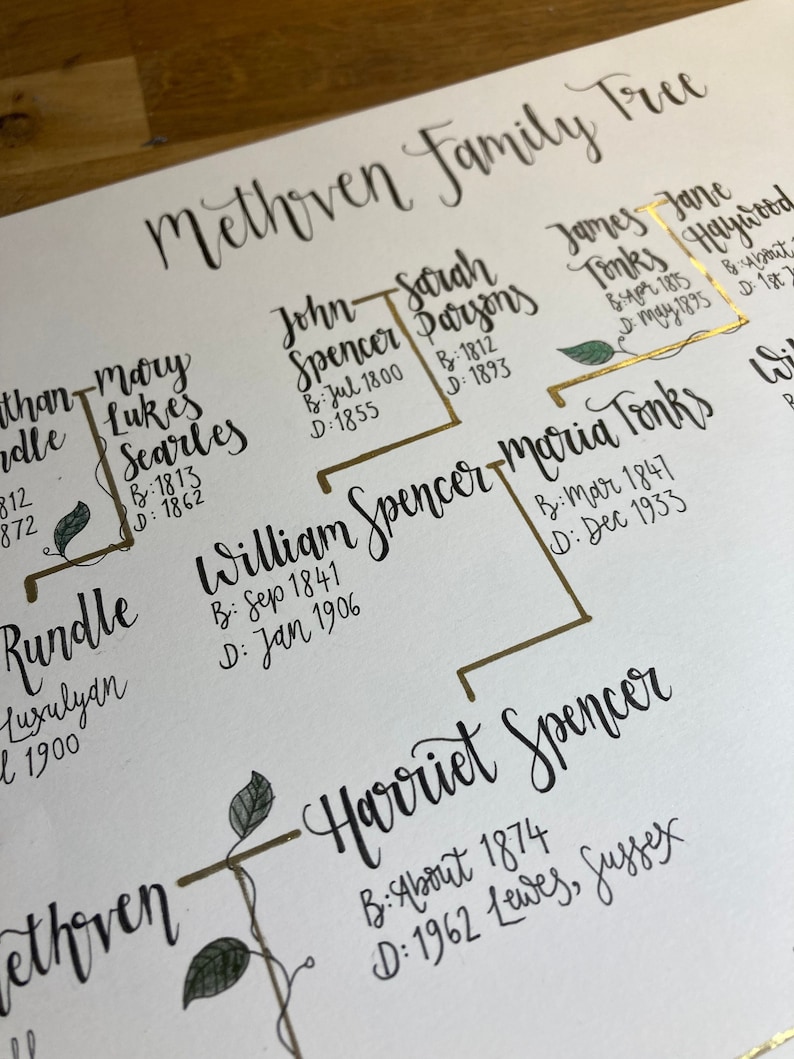 Methven Family Tree
John
Spencer
B: Jul 1800
D: 1855
Sarah
Parsons
B: 1812
D: 1893
James
Tonks
B: Apr 1815
D: May 1895
Jane
Haywood
B: About
D: 1st
Mary
Lukes
Searles
B: 1813
D: 1862
812
872
William Spencer
B: Sep 1841
D: Jan 1906
Maria Tonks
B: Mar 1847
D: Dec 1933
Rundle
Luxulyan
1900
Harriet Spencer
B: About 1874
D: 1962 Lewes, Sussex
ethven